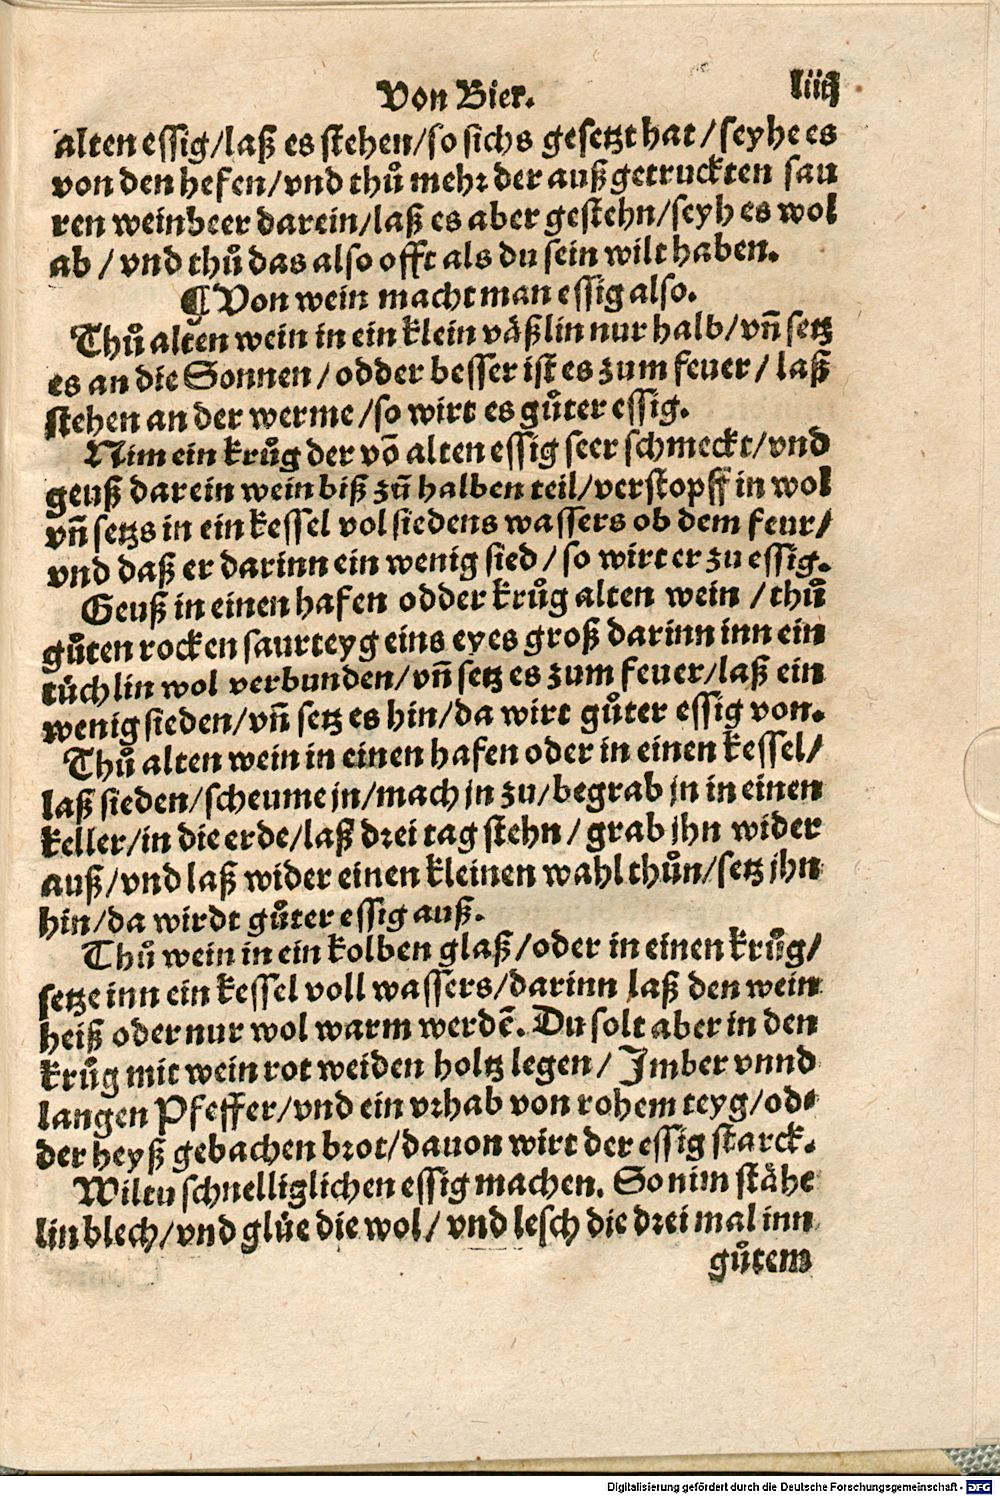 Von Bier. liiij
alten essig/laß es stehen/so sichs gesetzt hat/seyhe es
von den hefen/vnd thů mehr der außgetruckten sau
ren weinbeer darein/laß es aber gestehn/seyh es wol
ab/vnd thů das also offt als du sein wilt haben.
¶ Von wein macht man essig also.
Thů alten wein in ein klein väßlin nur halb/vñ setz
es an die Sonnen/odder besser ist es zum feuer/laß
stehen an der werme/so wirt es gůter essig.
Nim ein krůg der võ alten essig seer schmeckt/vnd
geuß darein wein biß zů halben teil/verstopff in wol
vñ setzs in ein kessel vol siedens wassers ob dem feur/
vnd daß er darinn ein wenig sied/so wirt er zu essig.
Geuß in einen hafen odder krůg alten wein/thů
gůten rocken saurteyg eins eyes groß darinn inn ein
tůchlin wol verbunden/vñ setz es zum feuer/laß ein
wenig sieden/vñ setz es hin/da wirt gůter essig von.
Thů alten wein in einen hafen oder in einen kessel/
laß sieden/scheume jn/mach jn zu/begrab jn in einen
keller/in die erde/laß drei tag stehn/grab jhn wider
auß/vnd laß wider einen kleinen wahl thůn/setz jhn
hin/da wirdt gůter essig auß.
Thů wein in ein kolben glaß/oder in einen krůg/
setze inn ein kessel voll wassers/darinn laß den wein
heiß oder nur wol warm werdē. Du solt aber in den
krůg mit wein rot weiden holtz legen/Imber vnnd
langen Pfeffer/vnd ein vrhab von rohem teyg/od⸗
der heyß gebachen brot/dauon wirt der essig starck.
Wiltu schnelliglichen essig machen. So nim stähe
lin blech/vnd glůe die wol/vnd lesch die drei mal inn
gůtem
Digitalisierung gefördert durch die Deutsche Forschungsgemeinschaft - DFG